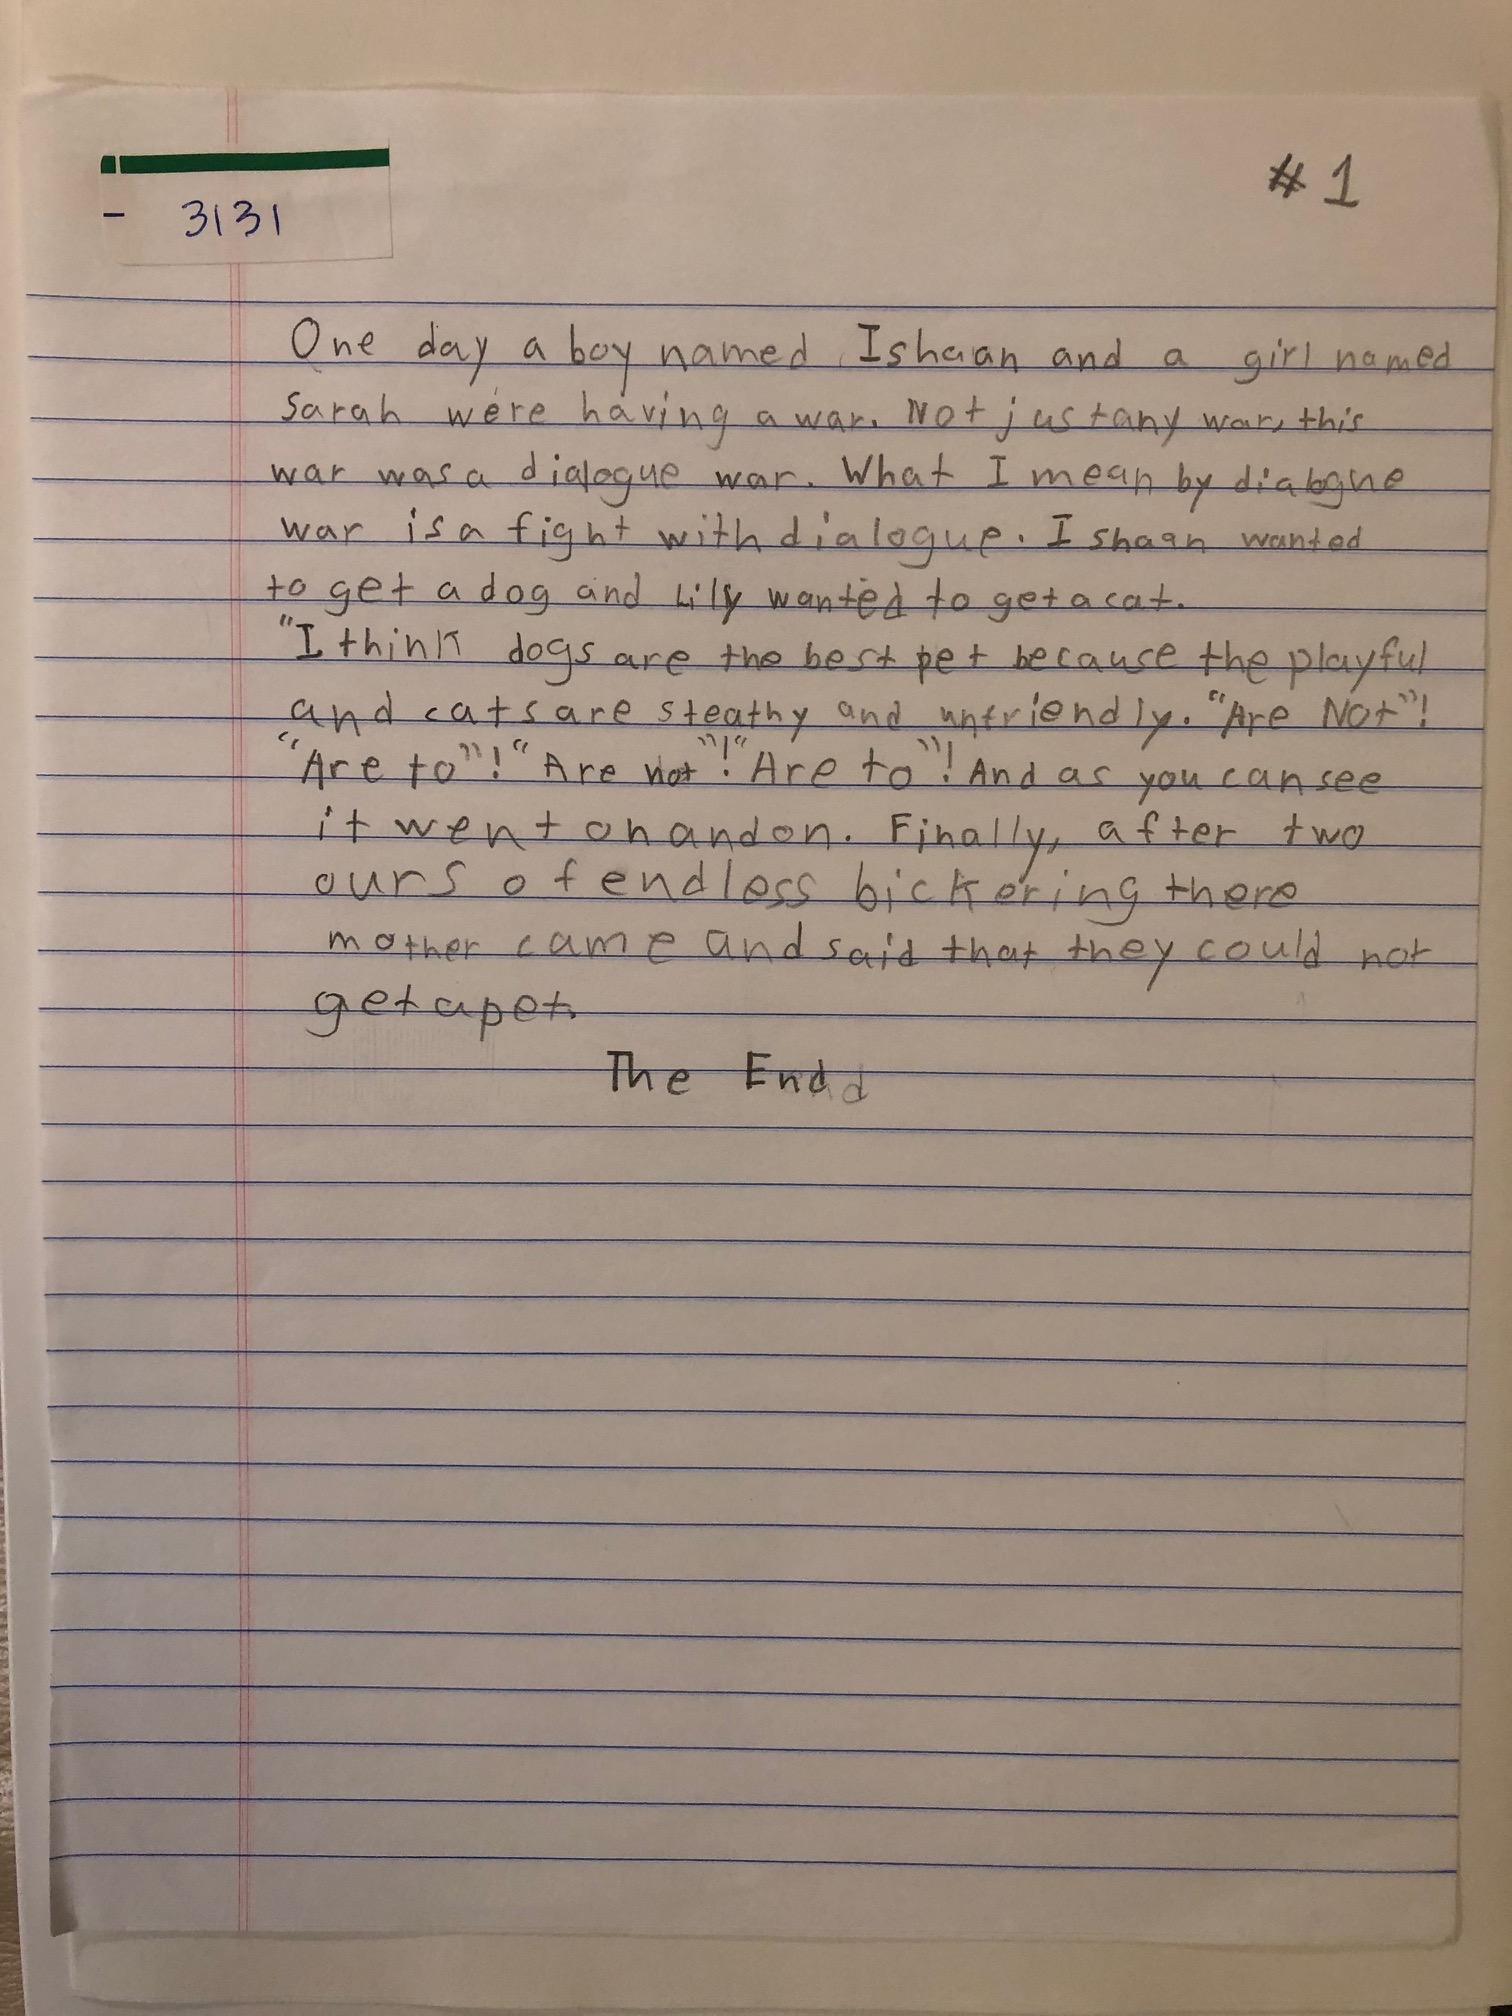 #1
- 3131
One day a boy named Ishaan and a girl named
Sarah were having a war. Not just any war, this
war was a dialogue war. What I mean by dialogue
war is a fight with dialogue. Ishaan wanted
to get a dog and Lily wanted to get a cat.
"I think dogs are the best pet because the playful
and cats are steathy and unfriendly. "Are Not"!
"Are to"! "Are not"! "Are to"! And as you can see
it went on and on. Finally, after two
ours of endless bickering there
mother came and said that they could not
get a pet.
The Endd